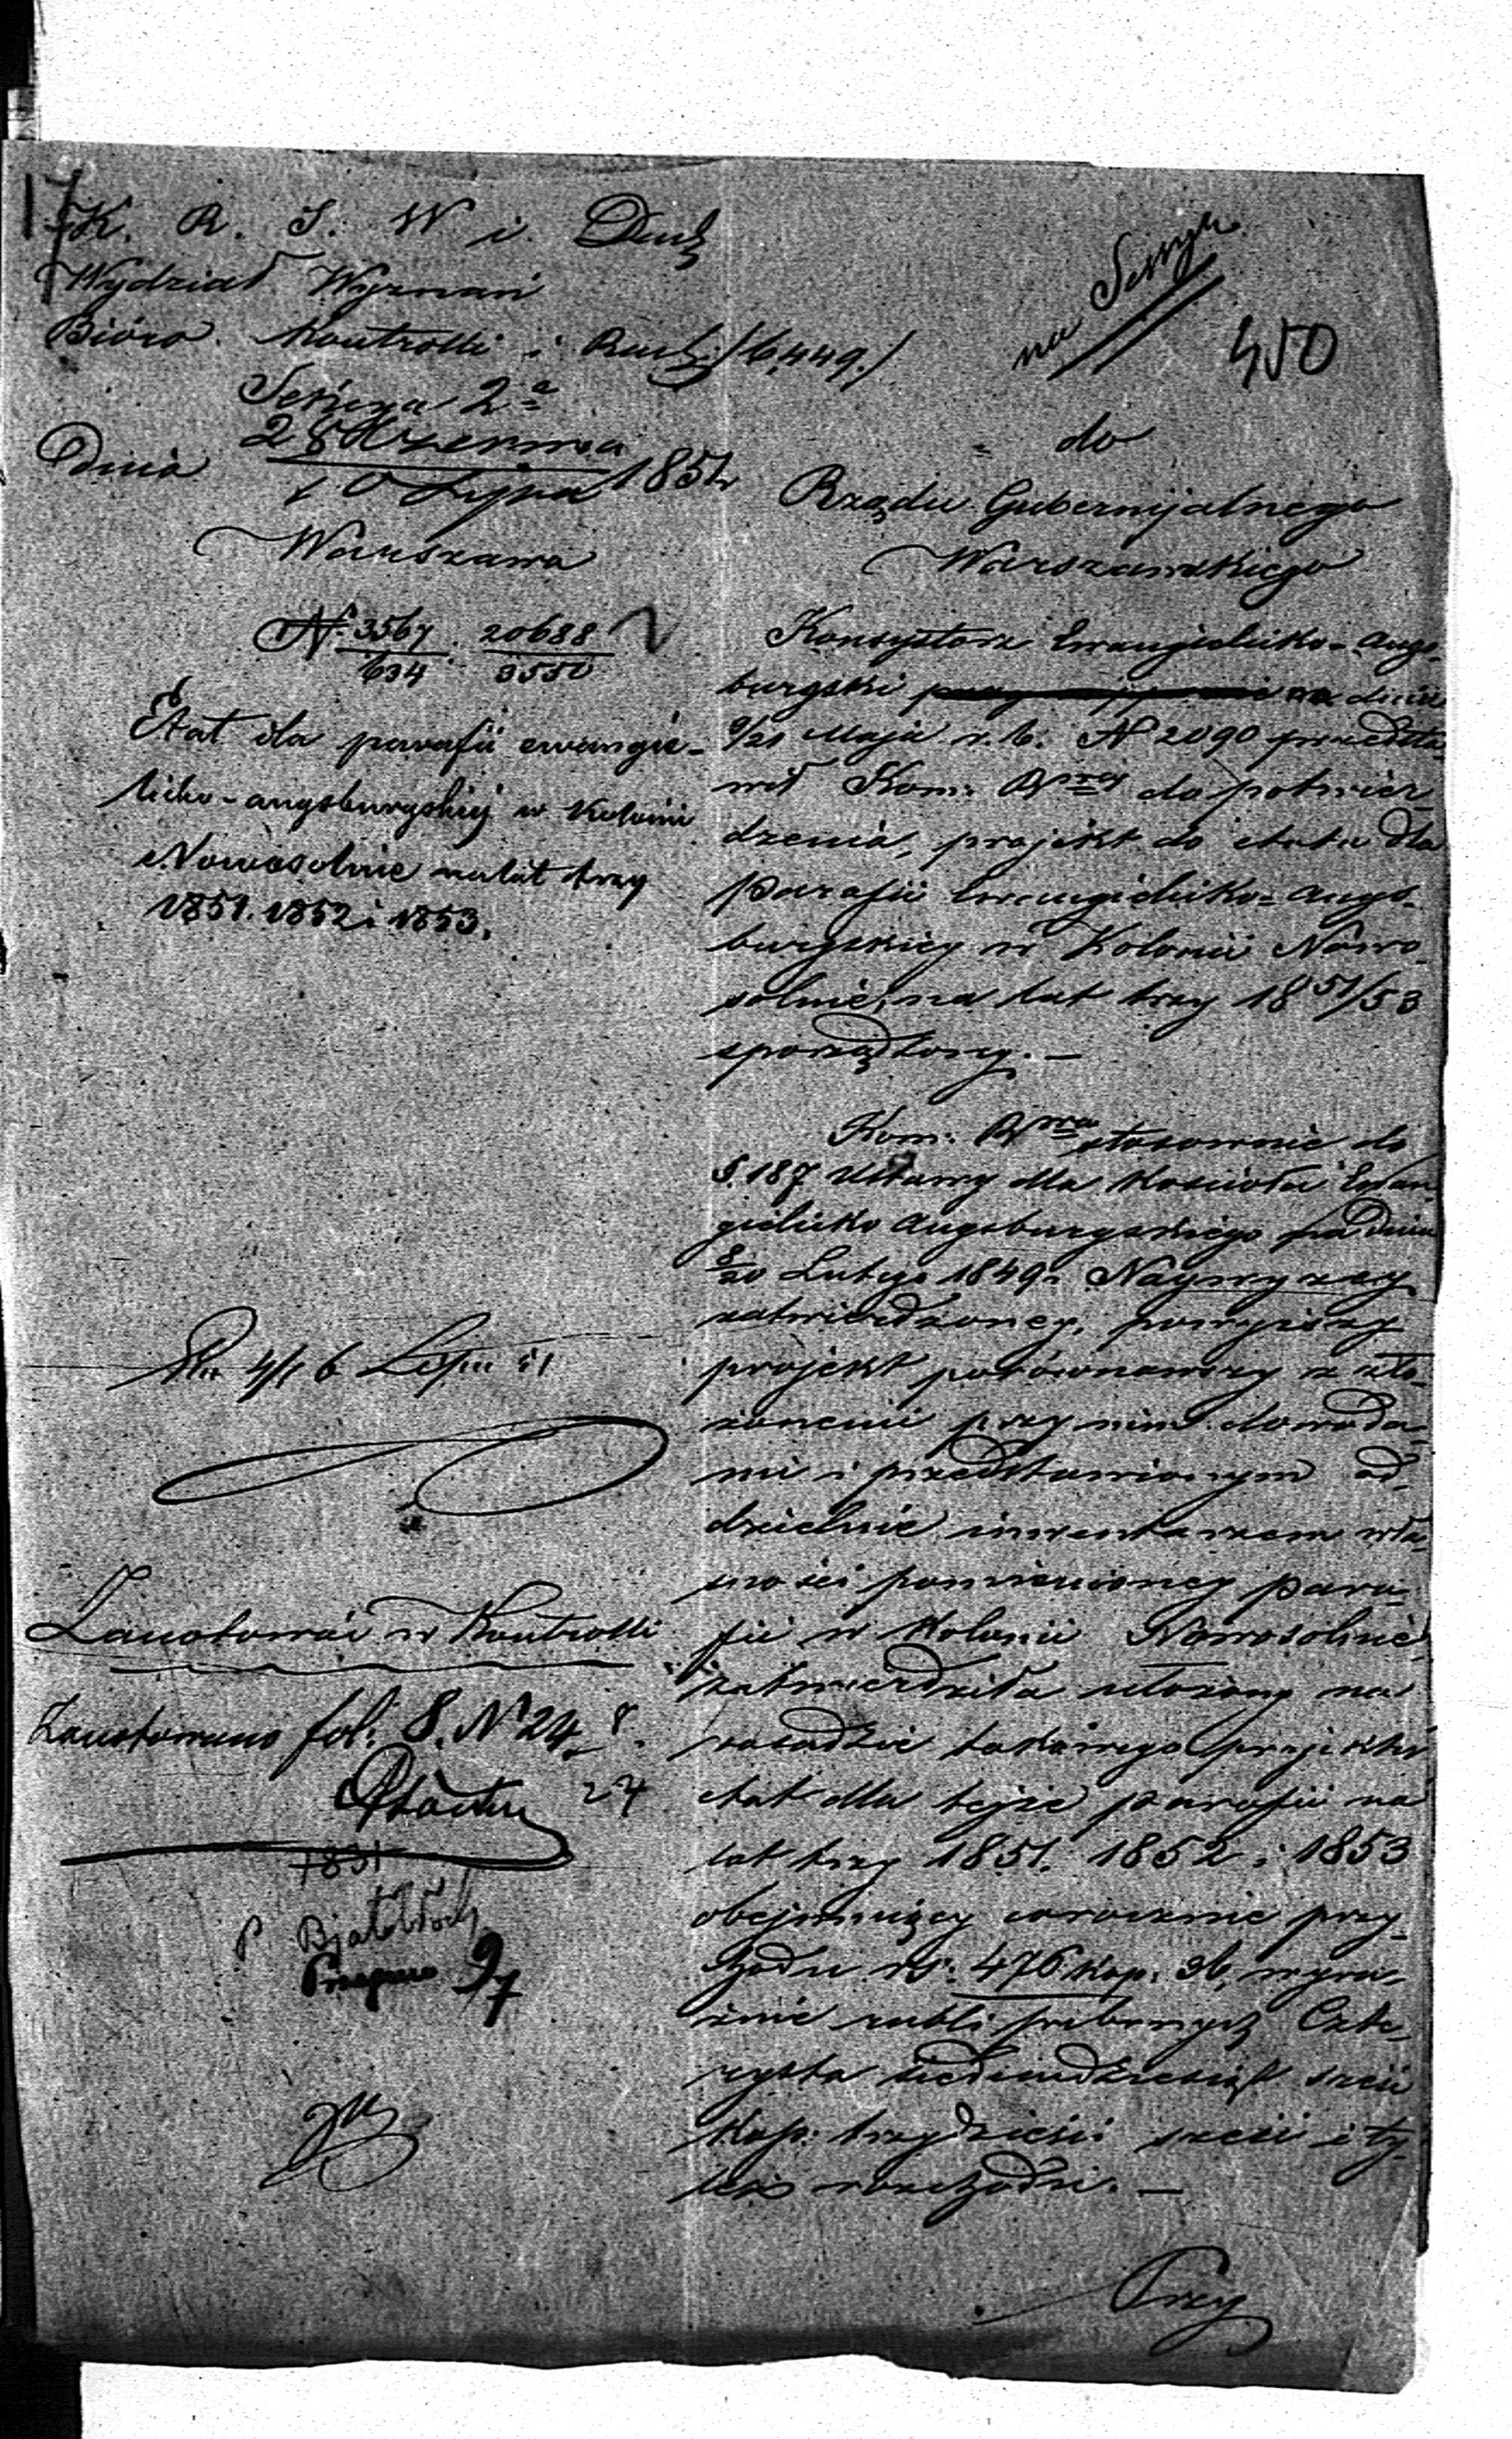 17
K. R. S. W i. Duch
Wydział Wyznań
Bióro Kontrolli i Rach: /6,449./
Sekcya 2a
Dnia 28 Czerwca / 10 Lipca 1851 r
Warszawa
N. 3567/634 20688/3550
Etat dla parafii ewangie-
licko-augsburgskiej w Kolonii
Nowosolnie na lat trzy
1851. 1852 i 1853.
4/16 Lipca 51
Zanotować w Kontrolli
Zanotowano fol: 8. N 24
24
1851
P. Białobłocki
9/7
na Sessyi
450
do
Rządu Gubernijalnego
Warszawskiego
Konsystorz Ewangielicko-Augs-
burgski dniu
9/21 Maja r. b. N 2090 przedsta-
wił Kom: Rwej do potwier-
dzenia, projekt do etatu dla
parafii Ewangielicko-Augs-
burgskiey w Kolonii Nowo-
solnie, na lat trzy 1851/53
sporządzony.—
Kom: Rwa stosownie do
§. 187 Ustawy dla Kościoła Ewan-
gielicko Augsburgskiego pod dniem
8/20 Lutego 1849 r. Naywyżey
zatwierdzoney, powyższy
projekt porównawszy z zło-
żonemi przy nim dowoda-
mi i przedstawionym od-
dzielnie inwentarzem wła-
sności pomienioney para-
fii w Kolonii Nowosolnie
zatwierdziła ułożony na
zasadzie takowego projektu
etat dla tejże parafii na
lat trzy 1851. 1852 i 1853
obejmuiący corocznie przy-
chodu rs: 476 kop: 36, wyra-
źnie rubli srebrnych Czte-
rysta siedmdziesiąt sześć
Kop: trzydzieści sześć i ty-
leż rozchodu.—
Przy